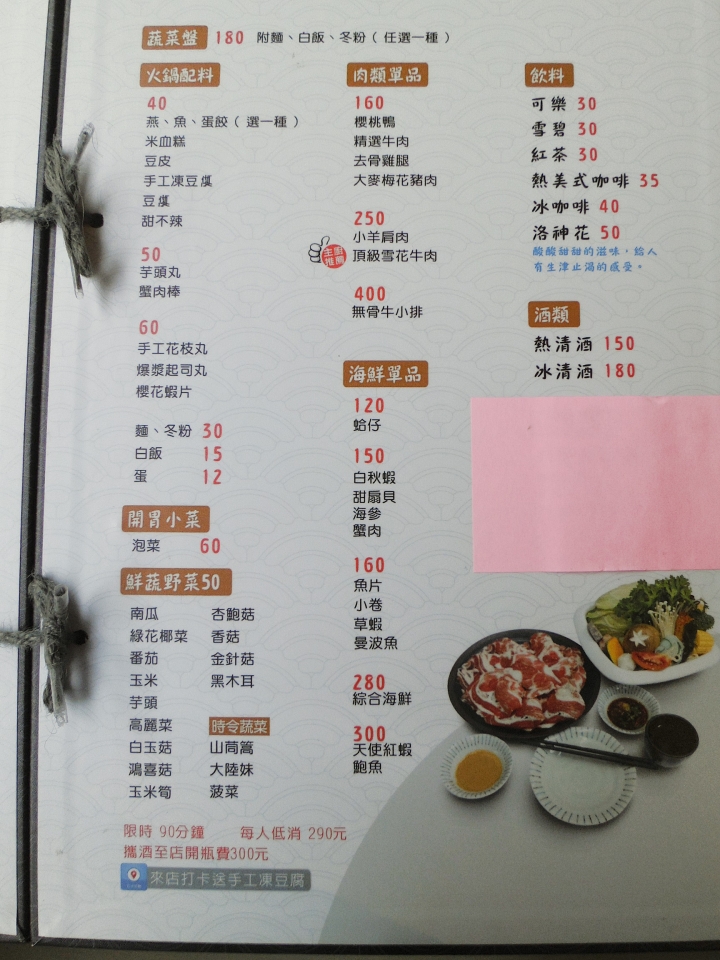 蔬菜盤 180 附麵、白飯、冬粉（任選一種）
火鍋配料
40
燕、魚、蛋餃（選一種）
米血糕
豆皮
手工凍豆腐
豆腐
甜不辣
50
芋頭丸
蟹肉棒
60
手工花枝丸
爆漿起司丸
櫻花蝦片
麵、冬粉 30
白飯 15
蛋 12
開胃小菜
泡菜 60
鮮蔬野菜50
南瓜 杏鮑菇
綠花椰菜 香菇
番茄 金針菇
玉米 黑木耳
芋頭
高麗菜 時令蔬菜
白玉菇 山茼篙
鴻喜菇 大陸妹
玉米筍 菠菜
肉類單品
160
櫻桃鴨
精選牛肉
去骨雞腿
大麥梅花豬肉
250
小羊肩肉
主廚推薦 頂級雪花牛肉
400
無骨牛小排
海鮮單品
120
蛤仔
150
白秋蝦
甜扇貝
海參
蟹肉
160
魚片
小卷
草蝦
曼波魚
280
綜合海鮮
300
天使紅蝦
鮑魚
飲料
可樂 30
雪碧 30
紅茶 30
熱美式咖啡 35
冰咖啡 40
洛神花 50
酸酸甜甜的滋味，給人
有生津止渴的感受。
酒類
熱清酒 150
冰清酒 180
限時 90分鐘 每人低消 290元
攜酒至店開瓶費300元
來店打卡送手工凍豆腐